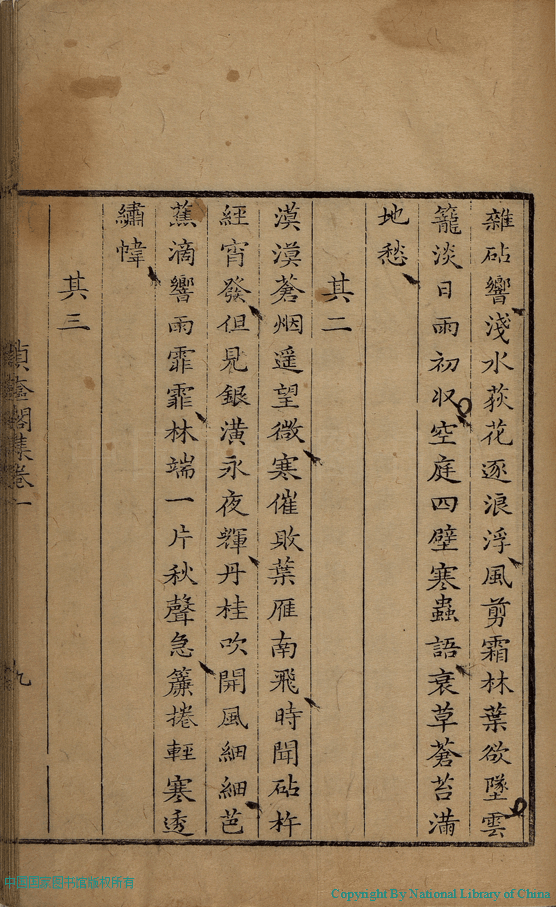 雜砧響淺水荻花逐浪浮風剪霜林葉欲墜雲
籠淡日雨初収空庭四壁寒蟲語衰草蒼苔滿
地愁
其二
漠漠蒼烟遥望微寒催敗葉雁南飛時聞砧杵
經宵發但見銀潢永夜輝丹桂吹開風細細芭
蕉滴響雨霏霏林端一片秋聲急簾捲輕寒透
繡幃
其三
閣集卷一
九
Copyright By National Library of China